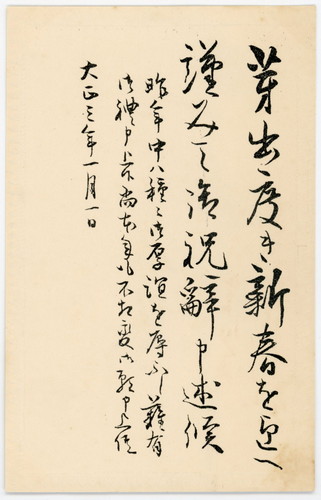 芽出度き新春を迎へ
謹みて御祝辞申述候
昨年中ハ種々御厚誼を辱ふし難有
御禮申上候尚本年も不相変御願申上候
大正三年一月一日